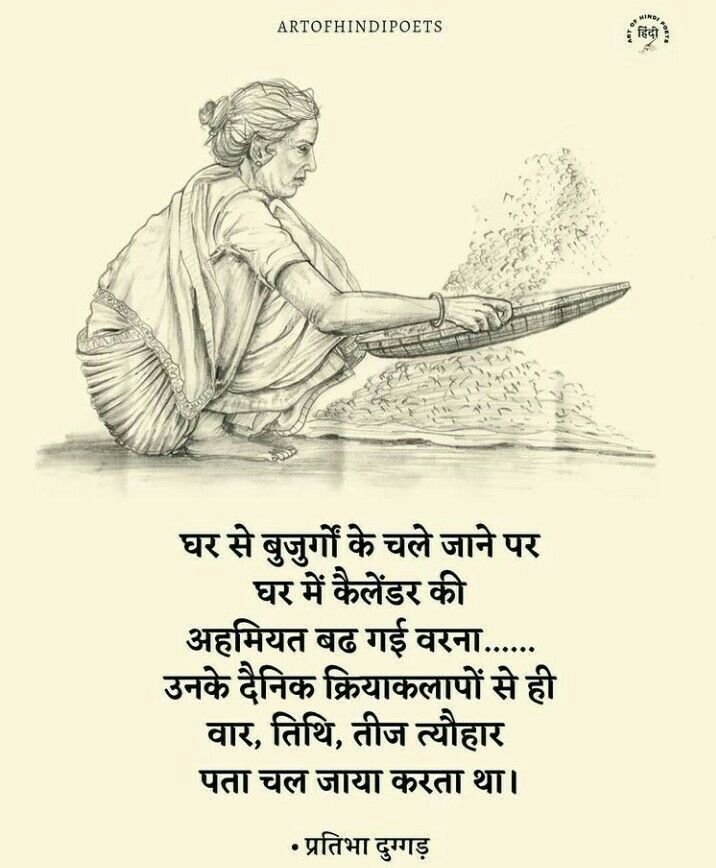 ARTOFHINDIPOETS
ART OF HINDI POETS
हिंदी
घर से बुजुर्गों के चले जाने पर
घर में कैलेंडर की
अहमियत बढ गई वरना......
उनके दैनिक क्रियाकलापों से ही
वार, तिथि, तीज त्यौहार
पता चल जाया करता था।
• प्रतिभा दुग्गड़